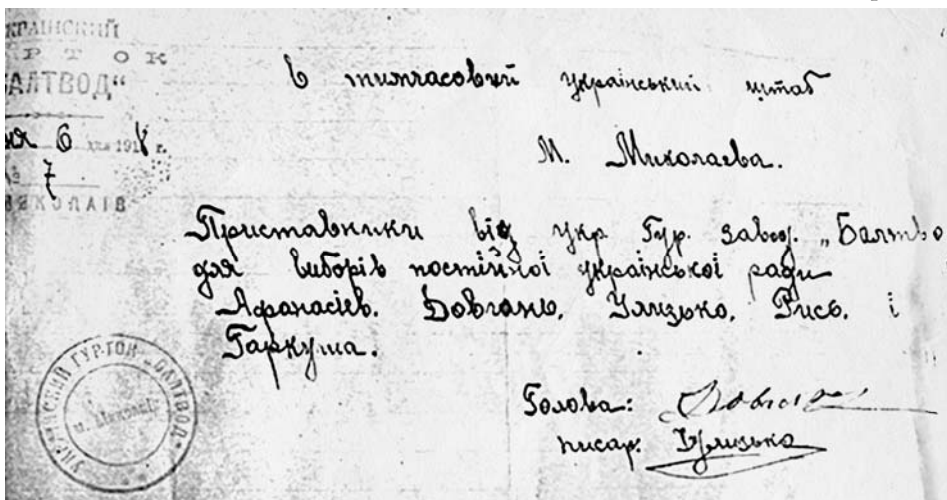 КРАЇНСКИЙ
УРТОК
АЛТВОД“
6 дня 1918 г.
№ 7
НИКОЛАІВ
В тимчасовий український штаб
М. Миколаєва.
Приставники від укр. Гур. завод. „Балтво
для виборів постійної української ради
Афанасієв. Довгань, Улизько, Рись, і
Гаркуша.
Голова: Довгань
писарь: Улизько
УКР СКИЙ ГУРТОК „БАЛТВОД“
м. Миколаїв